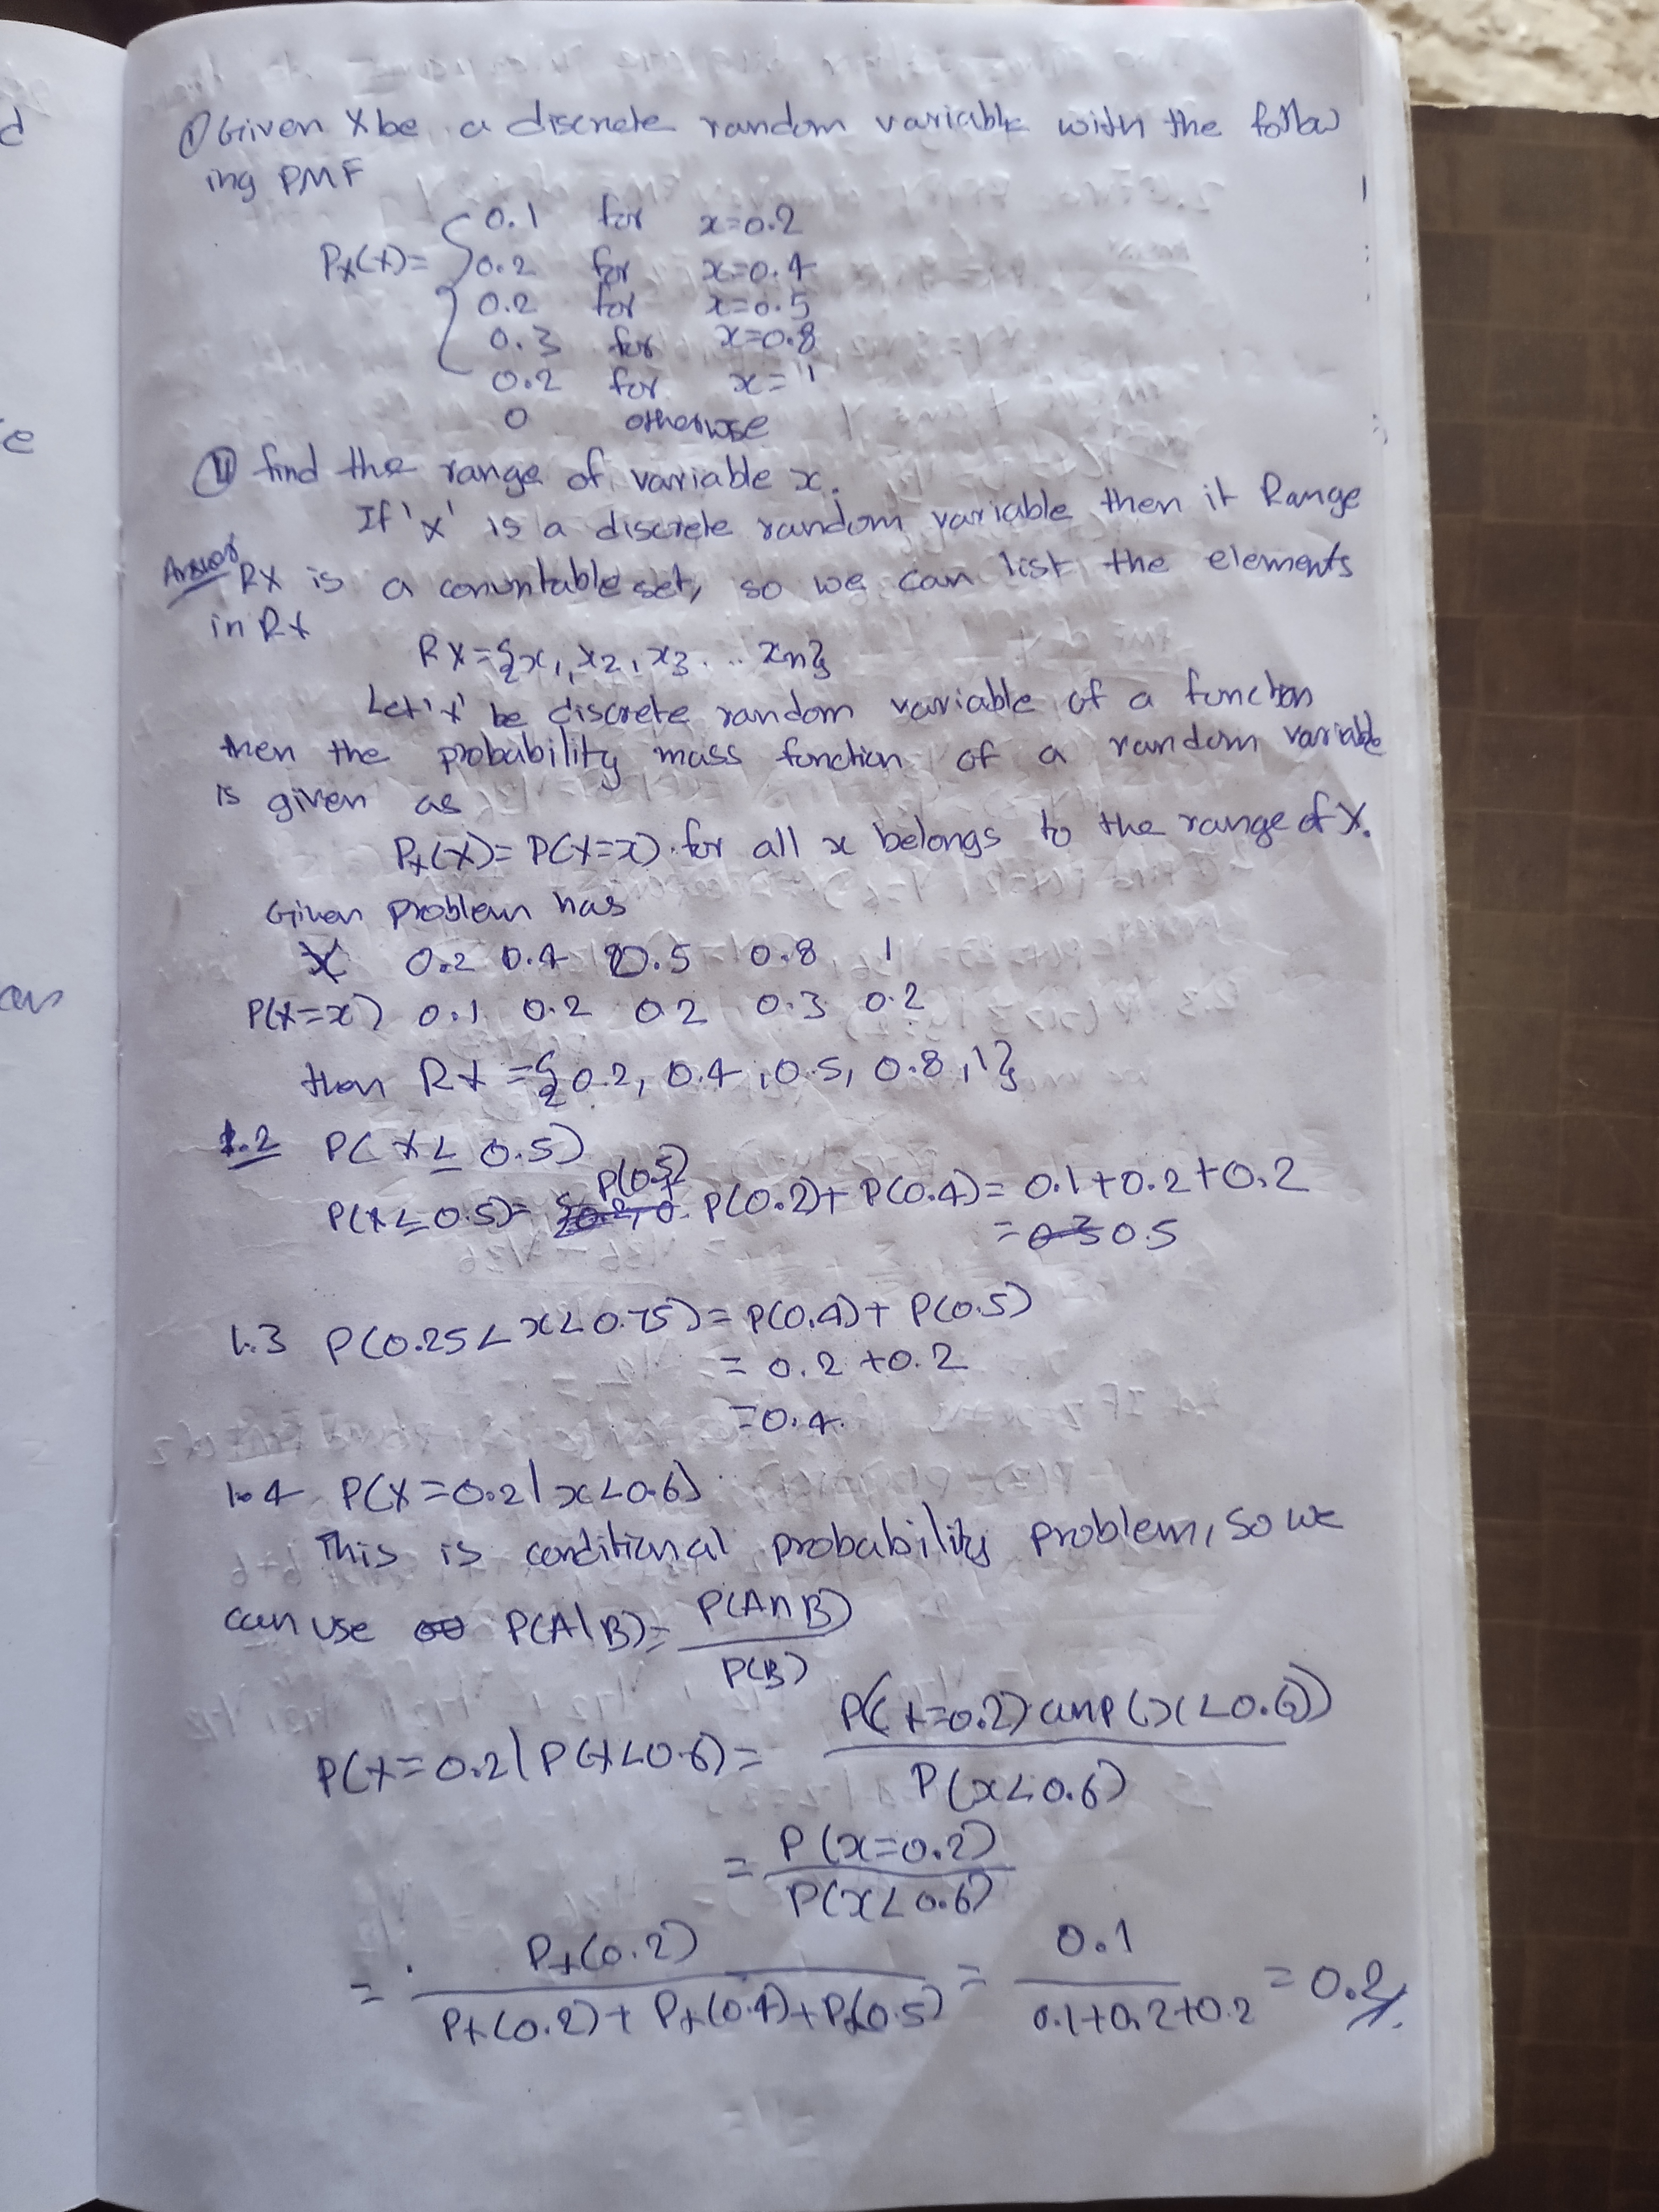 d
e
an
① Given X be a discrete random variable with the follow
ing PMF
Px(x)= { 0.1 for x=0.2
0.2 for x=0.4
0.2 for x=0.5
0.3 for x=0.8
0.2 for x=1
0 otherwise
find the range of variable x.
If 'x' is a discrete random variable then it Range
Answer RX is a conuntable set, so we can list the elements
in RX
RX={x1, x2, x3 ... xn}
Let 'x' be discrete random variable of a function
then the probability mass function of a random variable
is given as
Px(X)= P(X=x) for all x belongs to the range of X.
Given problem has
X 0.2 0.4 0.5 0.8 1
P(X=x) 0.1 0.2 0.2 0.3 0.2
then RX ={0.2, 0.4, 0.5, 0.8, 1}
1.2 P(X≤ 0.5)
P(0.5)
P(X≤0.5)= P(0.2)+ P(0.4)= 0.1+0.2+0.2
= 0.5
1.3 P(0.25<x<0.75)= P(0.4)+ P(0.5)
= 0.2 +0.2
=0.4.
1.4 P(X=0.2|x<0.6)
This is conditional probability problem, so we
can use P(A|B)= P(A∩B)
P(B)
P(X=0.2|P(X<0.6)= P((X=0.2) and P(x<0.6))
P(x<0.6)
= P(x=0.2)
P(x<0.6)
= Px(0.2) = 0.1 = 0.2
Px(0.2)+ Px(0.4)+Px(0.5) 0.1+0.2+0.2